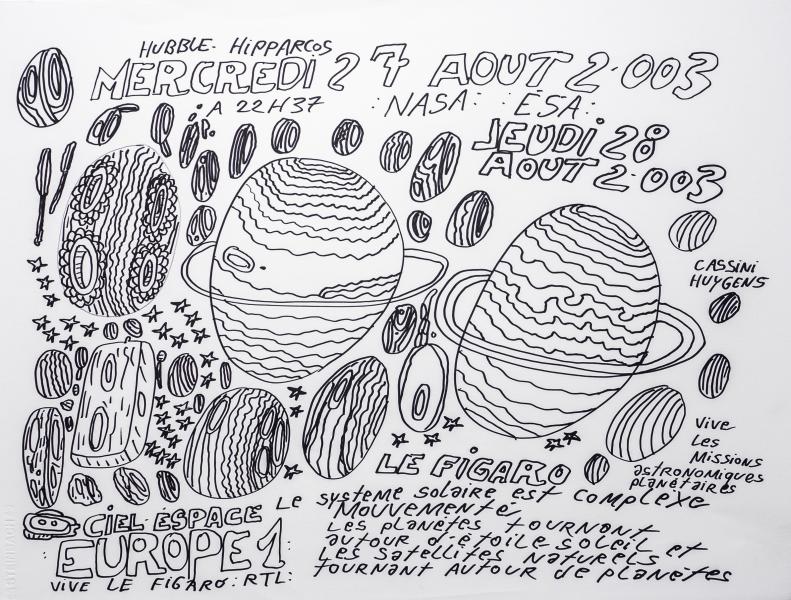 HUBBLE. HiPPARCOS
MERCREDI 27 AOUT 2.003
A 22H37 :NASA: :ESA:
JEUDI 28
AOUT 2.003
CASSiNi
HUYGENS
ViVe
Les
Missions
astronomiques
planétaires
LE FIGARO
Le systeme solaire est complexe
Mouvementé
Les planètes tournant
autour d'étoile soleil et
Les satellites naturels
tournant autour de planètes
CIEL.ESPACE
EUROPE 1:
VIVE LE FIGARO: RTL: